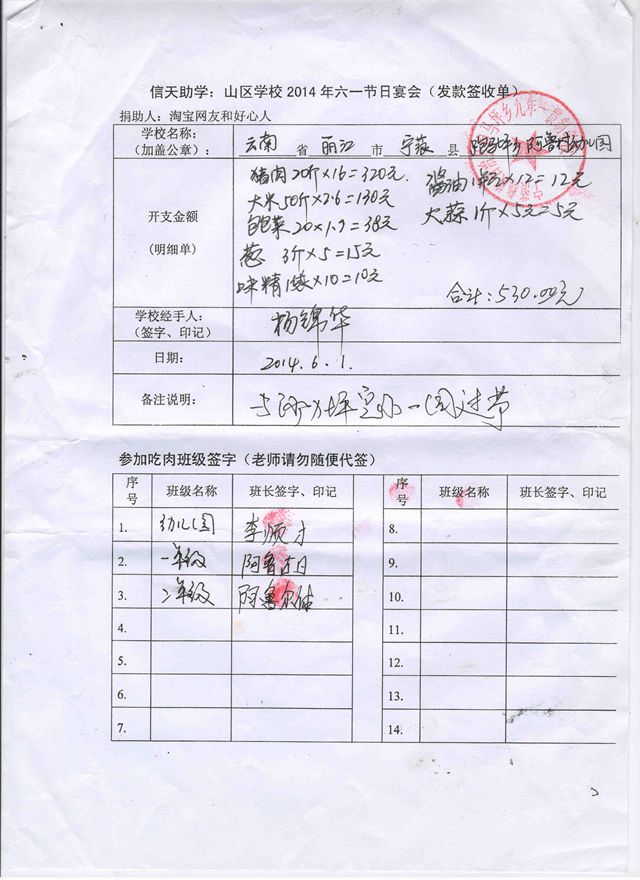 信天助学：山区学校 2014 年六一节日宴会（发款签收单）
捐助人：淘宝网友和好心人
学校名称：
（加盖公章）： 云南 省 丽江 市 宁蒗 县 跑马坪乡阿鲁村幼儿园
开支金额
（明细单）
猪肉 20斤×16=320元 酱油 1瓶×12=12元
大米 50斤×2.6=130元 大蒜 1斤×5元=5元
白菜 20×1.9=38元
葱 3斤×5=15元
味精 1袋×10=10元
合计：530.00元
学校经手人：
（签字、印记） 杨锦华
日期： 2014.6.1.
备注说明： 一园过节
参加吃肉班级签字（老师请勿随便代签）
序号 班级名称 班长签字、印记 序号 班级名称 班长签字、印记
1. 幼儿园 李顺才 8.
2. 一年级 阿鲁古日 9.
3. 二年级 阿鲁尔体 10.
4. 11.
5. 12.
6. 13.
7. 14.